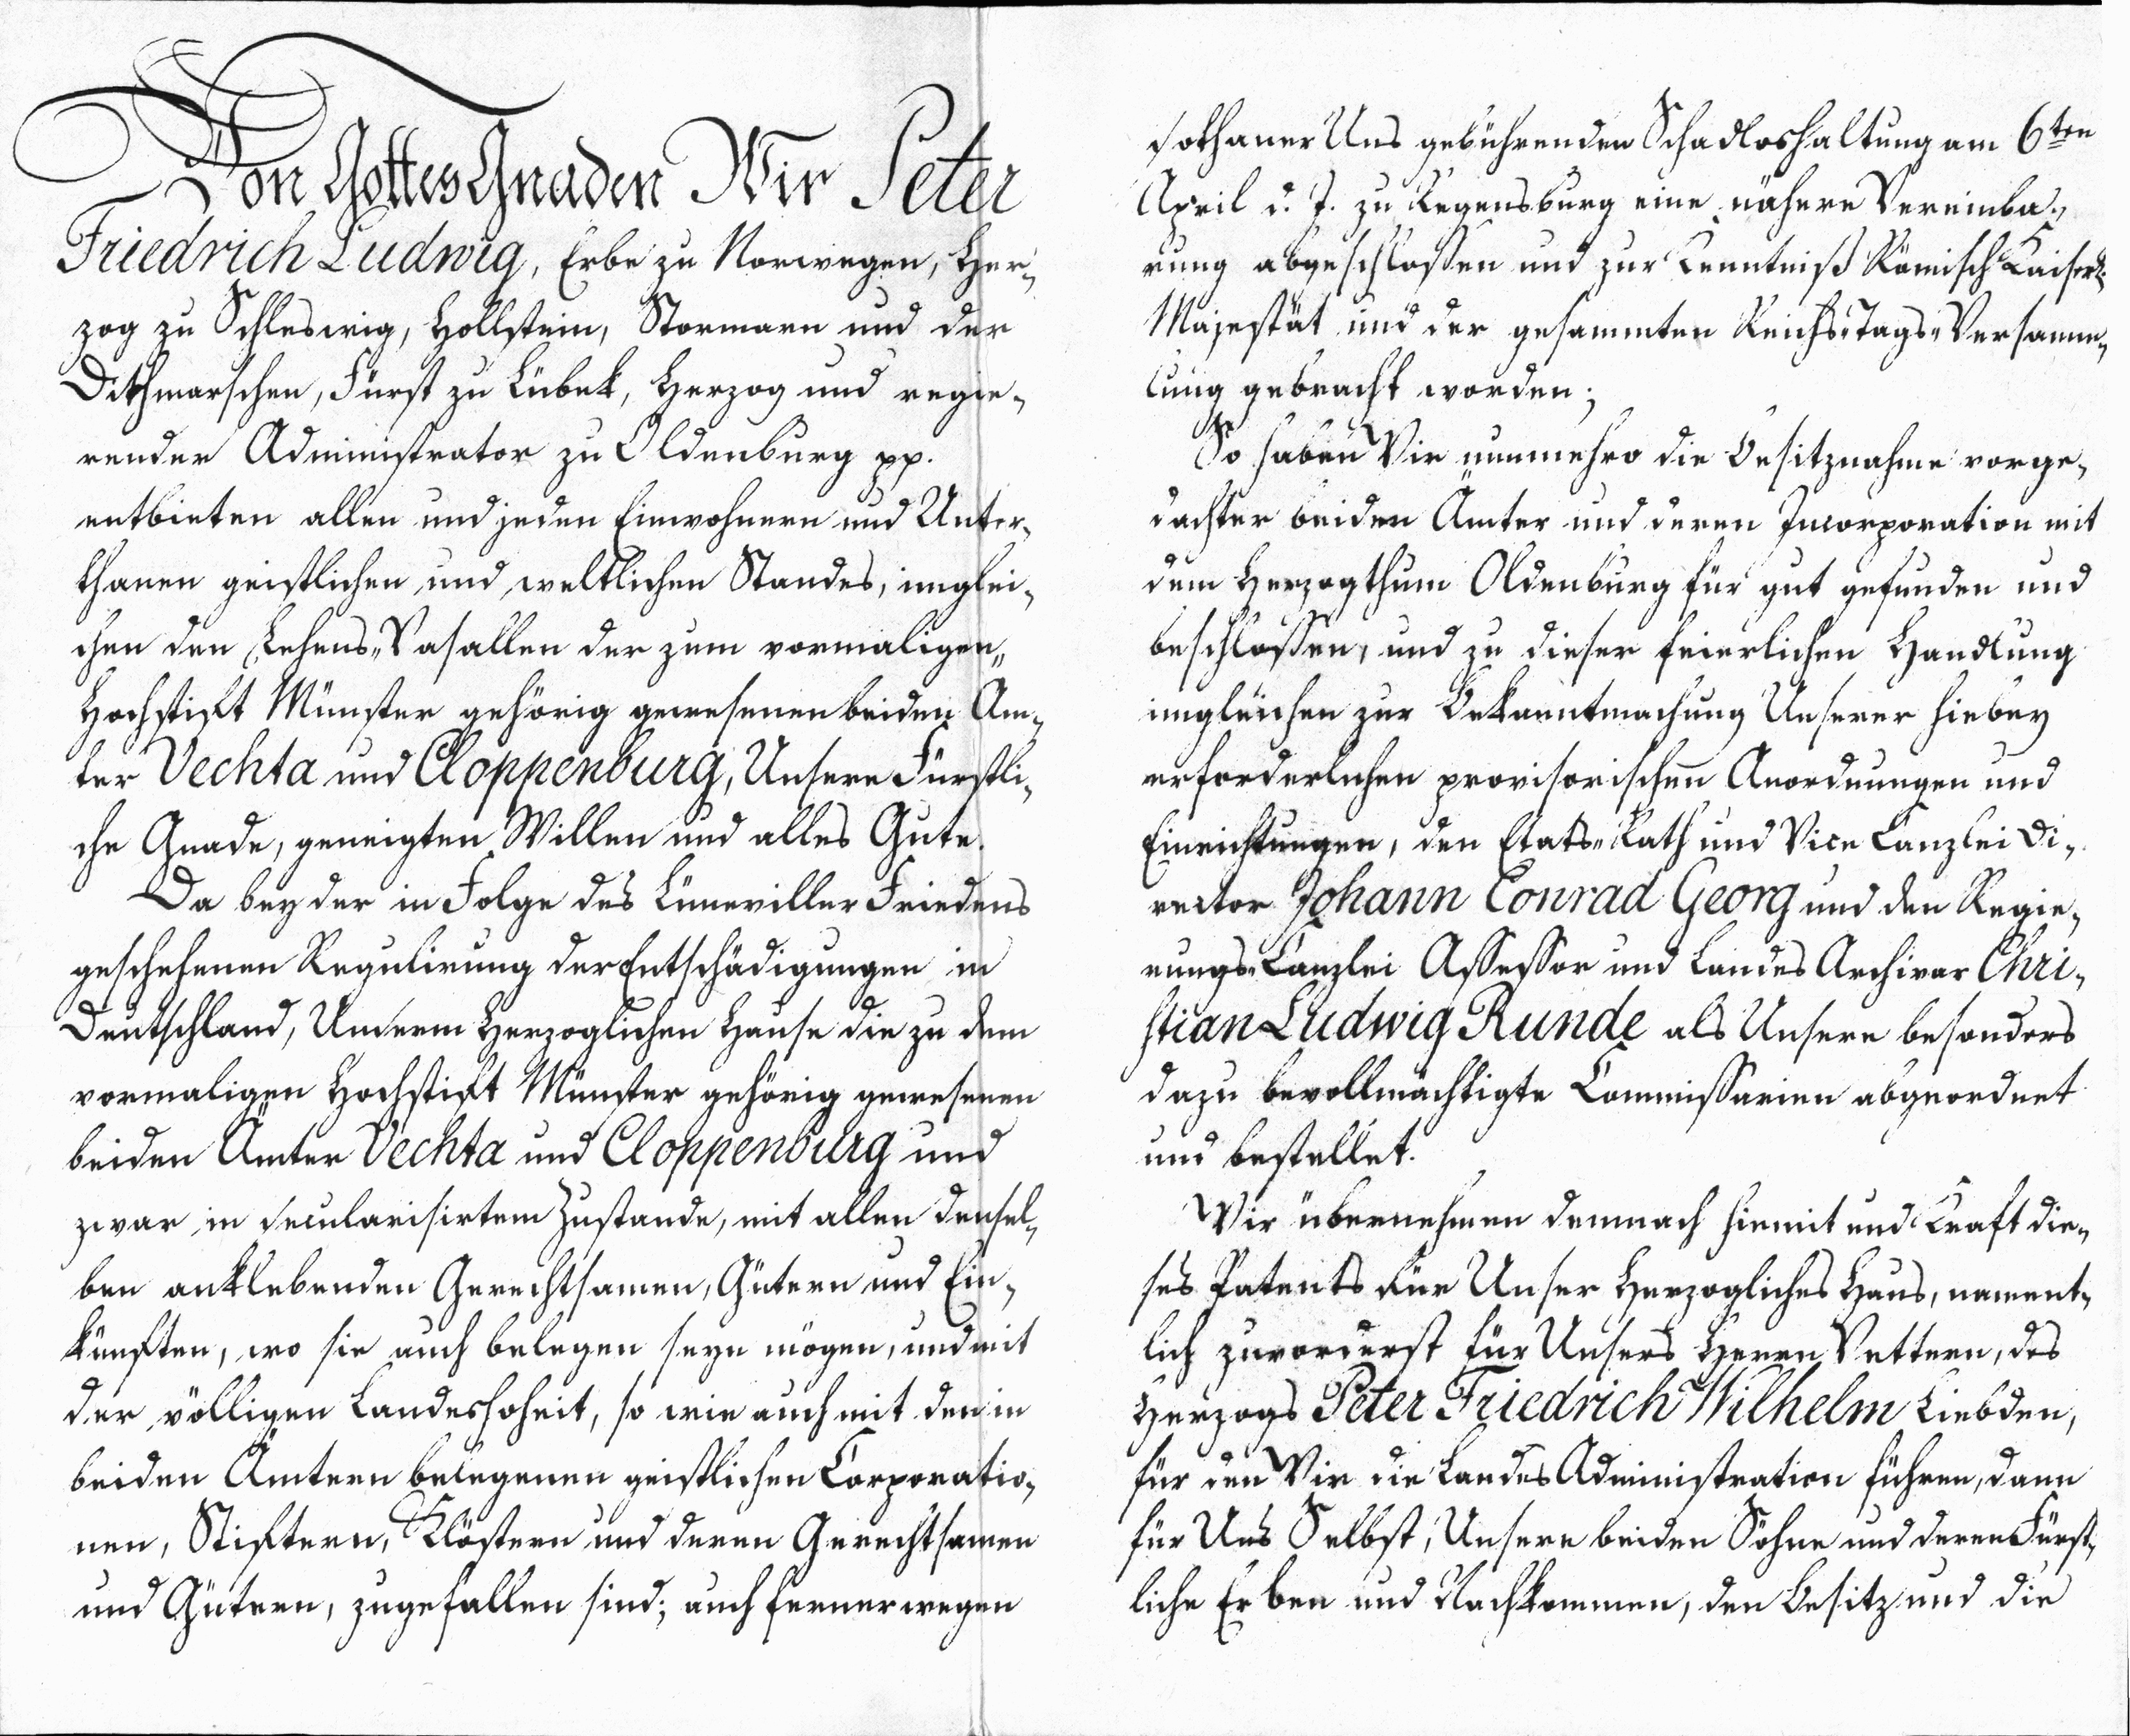 Von Gottes Gnaden Wir Peter
Friedrich Ludwig, Erbe zu Norwegen, Her-
zog zu Schleswig, Hollstein, Stormarn und der
Dithmarschen, Fürst zu Lübek, Herzog und regie-
render Administrator zu Oldenburg pp.
entbieten allen und jeden Einwohnern und Unter-
thanen geistlichen und weltlichen Standes, imglei-
chen den Lehens-Vasallen der zum vormaligen
Hochstift Münster gehörig gewesenen beiden Äm-
ter Vechta und Cloppenburg, Unsere Fürstli-
che Gnade, geneigten Willen und alles Gute.
Da bey der in Folge des Lüneviller Friedens
geschehenen Regulirung der Entschädigungen in
Deutschland, Unserm Herzoglichen Hause die zu dem
vormaligen Hochstift Münster gehörig gewesenen
beiden Ämter Vechta und Cloppenburg und
zwar in secularisirtem Zustande, mit allen densel-
ben anklebenden Gerechtsamen, Gütern und Ein-
künften, wo sie auch belegen seyn mögen, und mit
der völligen Landeshoheit, so wie auch mit den in
beiden Ämtern belegenen geistlichen Corporatio-
nen, Stiftern, Klöstern und deren Gerechtsamen
und Gütern, zugefallen sind; auch ferner wegen
sothaner Uns gebührenden Schadloshaltung am 6ten
April d. J. zu Regensburg eine nähere Vereinba-
rung abgeschloßen und zur Kenntniß Römisch Kaiserl.
Majestät und der gesammten Reichs-Tags-Versamm-
lung gebracht worden;
So haben Wir nunmehro die Besitznahme vorge-
dachter beiden Ämter und deren Incorporation mit
dem Herzogthum Oldenburg für gut gefunden und
beschloßen, und zu dieser feierlichen Handlung
imgleichen zur Bekanntmachung Unserer hiebey
erforderlichen provisorischen Anordnungen und
Einrichtungen, den Etats-Rath und Vice Canzlei Di-
rector Johann Conrad Georg und den Regie-
rungs-Canzlei Assessor und Landes Archivar Chri-
stian Ludwig Runde als Unsere besonders
dazu bevollmächtigte Commissarien abgeordnet
und bestellet.
Wir übernehmen demnach hiemit und Kraft die-
ses Patents für Unser Herzogliches Haus, nament-
lich zuvorderst für Unsers Herrn Vettern, des
Herzogs Peter Friedrich Wilhelm Liebden,
für den Wir die Landes Administration führen, dann
für Uns Selbst, Unsere beiden Söhne und deren Fürst-
liche Erben und Nachkommen, den Besitz und die